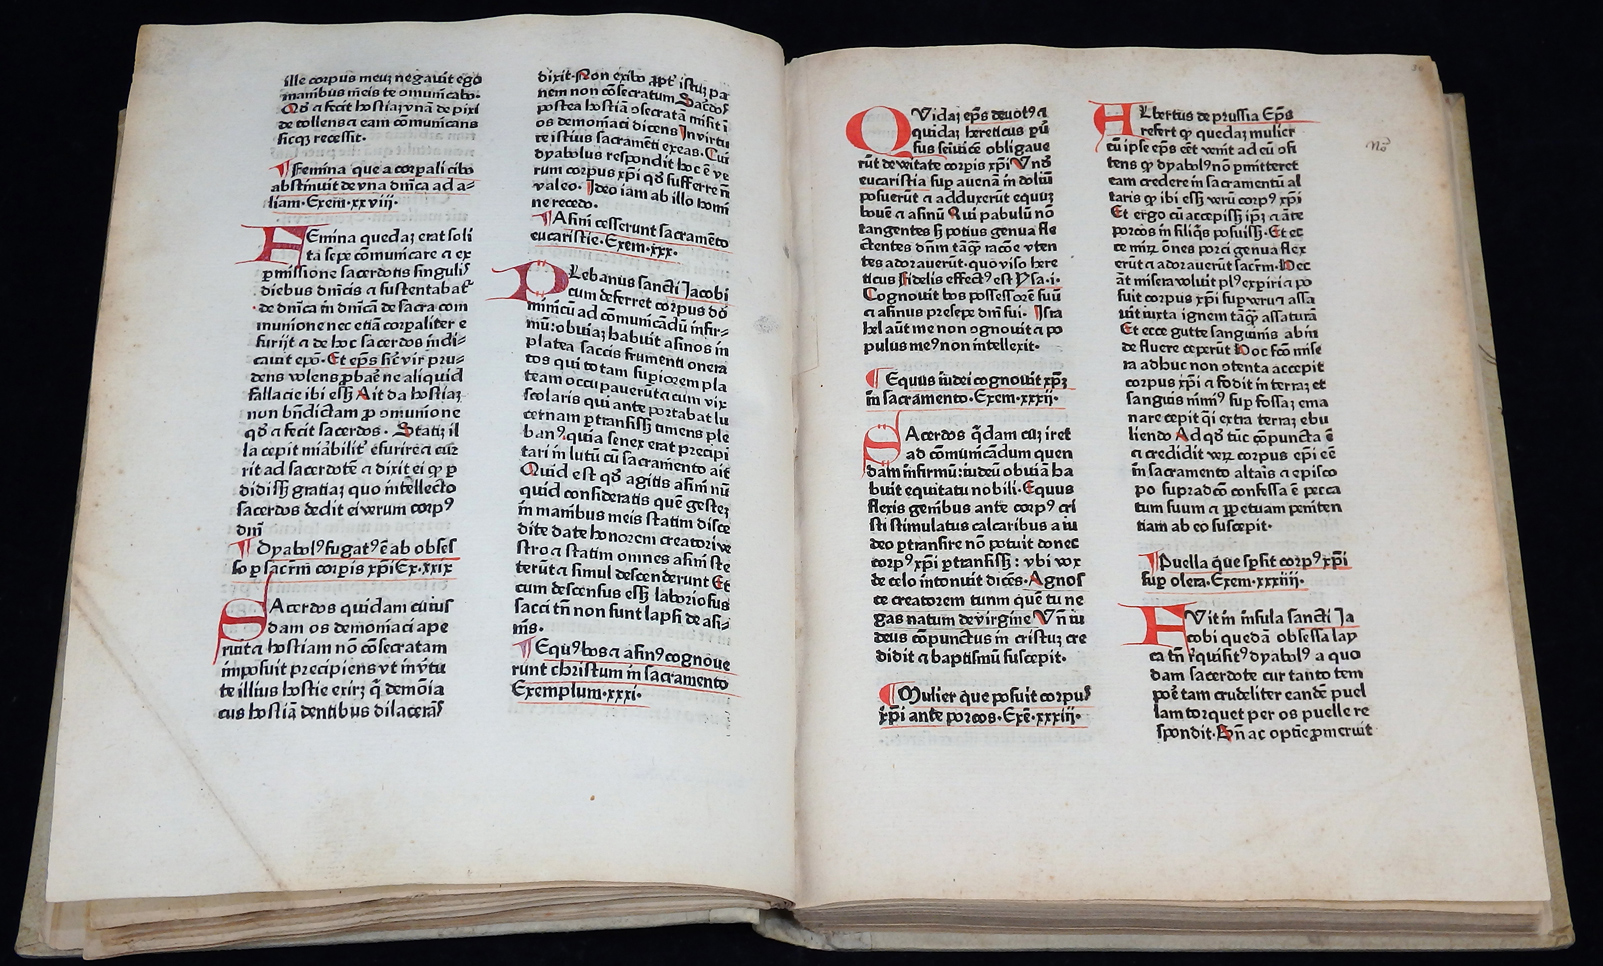 ille corpus meuʒ negauit ego
manibus meis te cōmunicabo.
Qđ ⁊ fecit hostiaʒ vnā de pixi
de tollens ⁊ eam cōmunicans
sicqʒ recessit.
¶ Femina que a corpali cibo
abstinuit de vna dnica ad a⸗
liam. Exem. xxviij.
FEmina quedaʒ erat soli
ta sepe cōmunicare ⁊ ex
ꝑmissione sacerdotis singulis
diebus dnicis ⁊ sustentabat᷑
de dnica in dnicā de sacra com
munione nec etiā corꝑaliter e
surijt ⁊ de hoc sacerdos indi⸗
cauit epo. Et eps sic̄ vir pru⸗
dens volens ꝓbar̄ ne aliquid
fallacie ibi eſſʒ Ait da hostiaʒ
non bndictam ꝓ cōmunione
qđ ⁊ fecit sacerdos. Statiʒ il
la cepit mirabilit᷑ esurire ⁊ cur
rit ad sacerdotē ⁊ dixit ei ꝙ ꝑ
didiſſʒ gratiaʒ quo intellecto
sacerdos dedit ei verum corpꝰ
dni
¶ Dyabolꝰ fugatꝰ ē ab obses
so ꝑ sacrm̄ corpis xp̄i Ex. xxix
SAcerdos quidam cuius
dam os demoniaci ape
ruit ⁊ hostiam nō cōsecratam
imposuit precipiens vt in v̓tu
te illius hostie exirʒ q̄ demōia
cus hostiā dentibus dilacerās
dixit. Non exibo ꝓpt᷑ istuʒ pa
nem non cōsecratum Sacdos
postea hostiā cōsecratā misit ī
os demoniaci dicens In virtu
te istius sacramēti exeas. Cui
dyabolus respondit hoc ē ve
rum corpus xp̄i qđ sufferre n̄
valeo. Ideo iam ab illo homi
ne recedo.
¶ Asini cesserunt sacramēto
eucaristie. Exem. xxx.
PLebanus sancti Jacobi
cum deferret corpus do
minicū ad cōmunicādū infir⸗
mū: obuiaʒ habuit asinos in
platea saccis frumenti onera
tos qui totam supiorem pla
team occupauerūt ⁊ cum vix
scolaris qui ante portabat lu
cernam ꝑtransiſſʒ timens ple
banꝰ. quia senex erat precipi
tari in lutū cū sacramēto ait
Quid est qđ agitis asini nū
quid consideratis quē gesteʒ
in manibus meis statim disce
dite date honorem creatori ve
stro ⁊ statim omnes asini ste
terūt ⁊ simul descenderunt Et
cum descensus eſſʒ laboriosus
sacci tn̄ non sunt lapsi de asi⸗
nis.
¶ Equꝰ bos ⁊ asinꝰ cognoue
runt christum in sacramento
Exemplum. xxxi.
QVidaʒ eps deuotꝰ ⁊
quidaʒ hereticus
rūt de vitate corpis xp̄i Vnō
eucaristia sup auenā in doliū
posuerūt ⁊ adduxerūt equuʒ
bouē ⁊ asinū Qui pabulū nō
tangentes sʒ potius genua fle
ctentes dnm tāqʒ racōe vten
tes adorauerūt. quo viso here
ticus fidelis effectꝰ est Ysa. i.
Cognouit bos possessorē suū
⁊ asinus presepe dni sui. Isra
hel aūt me non cognouit ⁊ po
pulus meꝰ non intellexit.
¶ Equus iudei cognouit xp̄ʒ
in sacramento. Exem. xxxij.
SAcerdos q̓dam cuʒ iret
ad cōmunicādum quen
dam infirmū: iudeū obuiā ha
buit equitatu nobili. Equus
flexis genibus ante corpꝰ cri
sti stimulatus calcaribus a iu
deo ꝑtransire nō potuit donec
corpꝰ xp̄i ꝑtransiſſʒ: vbi vox
de celo intonuit dicēs. Agnos
ce creatorem tuum quē tu ne
gas natum de virgine Vn̄ iu
deus cōpunctus in cristuʒ cre
didit ⁊ baptismū suscepit.
¶ Mulier que posuit corpus
xp̄i ante porcos. Exē. xxxiij.
ALbertus de prussia Eps
refert ꝙ quedaʒ mulier
cū ipse eps eēt venit ad eū osti
tens ꝙ dyabolꝰ nō ꝑmitteret
eam credere in sacramentū al
taris ꝙ ibi eſſʒ verū corpꝰ xp̄i
Et ergo cū accepiſſʒ ipʒ ⁊ āte
porcos in siliqs posuiſſʒ. Et ec
ce mirʒ ōnes porci genua flex
erūt ⁊ adorauerūt sacrm̄. Hec
āt misera voluit plꝰ expiri ⁊ po
suit corpus xp̄i sup veru ⁊ assa
uit iuxta ignem tāqʒ assaturā
Et ecce gutte sanguinis ab in
de fluere ceperūt Hoc fcō mise
ra adhuc non cōtenta accepit
corpus xp̄i ⁊ fodit in terraʒ et
sanguis nimiꝰ sup fossaʒ ema
nare cepit q̓i extra terraʒ ebu
liendo Ad qđ tūc cōpuncta ē
⁊ credidit verʒ corpus xp̄i eē
in sacramento altaris ⁊ episco
po supradcō confessa ē pecca
tum suum ⁊ ꝑpetuam peniten
tiam ab eo suscepit.
¶ Puella que spsit corpꝰ xp̄i
sup olera. Exem. xxxiiij.
FVit in insula sancti Ja
cobi quedā obsessa lay
ca tn̄ rquisitꝰ dyabolꝰ a quo
dam sacerdote cur tanto tem
poꝛe tam crudeliter eandē puel
lam torquet per os puelle re
spondit. Bn̄ ac optie ꝓmeruit